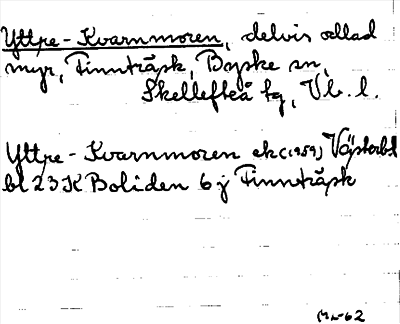 Yttre-Kvarnmoren, delvis odlad
myr, Finnträsk, Byske sn,
Skellefteå tg, Vb. l.
Yttre-Kvarnmoren ek (1959) Västerbt
bl 23K Boliden 6j Finnträsk
-62